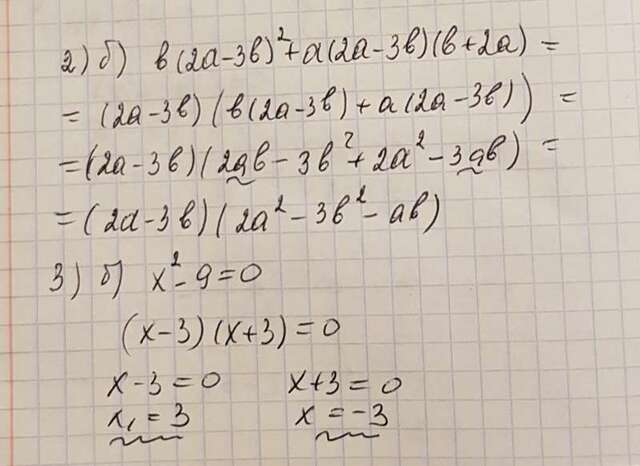 2) б) в(2а-3в)²+а(2а-3в)(в+2а) =
= (2а-3в)(в(2а-3в)+а(2а-3в)) =
=(2а-3в)(2ав-3в²+2а²-3ав) =
=(2а-3в)(2а²-3в²-ав)
3) б) х²-9=0
(х-3)(х+3)=0
х-3=0 х+3=0
х₁=3 х=-3